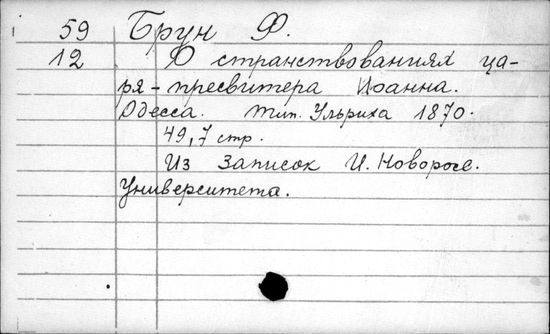 59 Брун Ф.
12 О странствованиях ца-
ря-пресвитера Иоанна.
Одесса. тип. Ульриха 1870.
49,7 стр.
Из Записок И. Новорос.
Университета.